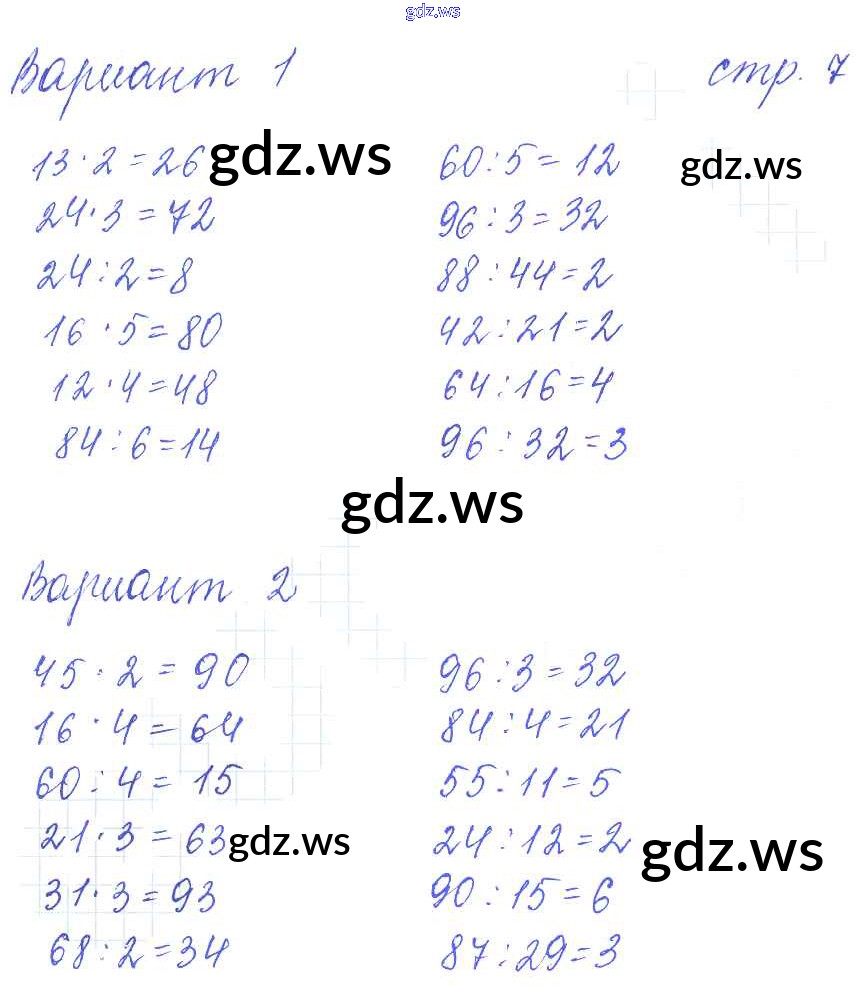 gdz.ws
Вариант 1 стр. 7
13 · 2 = 26 gdz.ws 60 : 5 = 12 gdz.ws
24 · 3 = 72 96 : 3 = 32
24 : 2 = 8 88 : 44 = 2
16 · 5 = 80 42 : 21 = 2
12 · 4 = 48 64 : 16 = 4
84 : 6 = 14 96 : 32 = 3
gdz.ws
Вариант 2
45 · 2 = 90 96 : 3 = 32
16 · 4 = 64 84 : 4 = 21
60 : 4 = 15 55 : 11 = 5
21 · 3 = 63 gdz.ws 24 : 12 = 2 gdz.ws
31 · 3 = 93 90 : 15 = 6
68 : 2 = 34 87 : 29 = 3